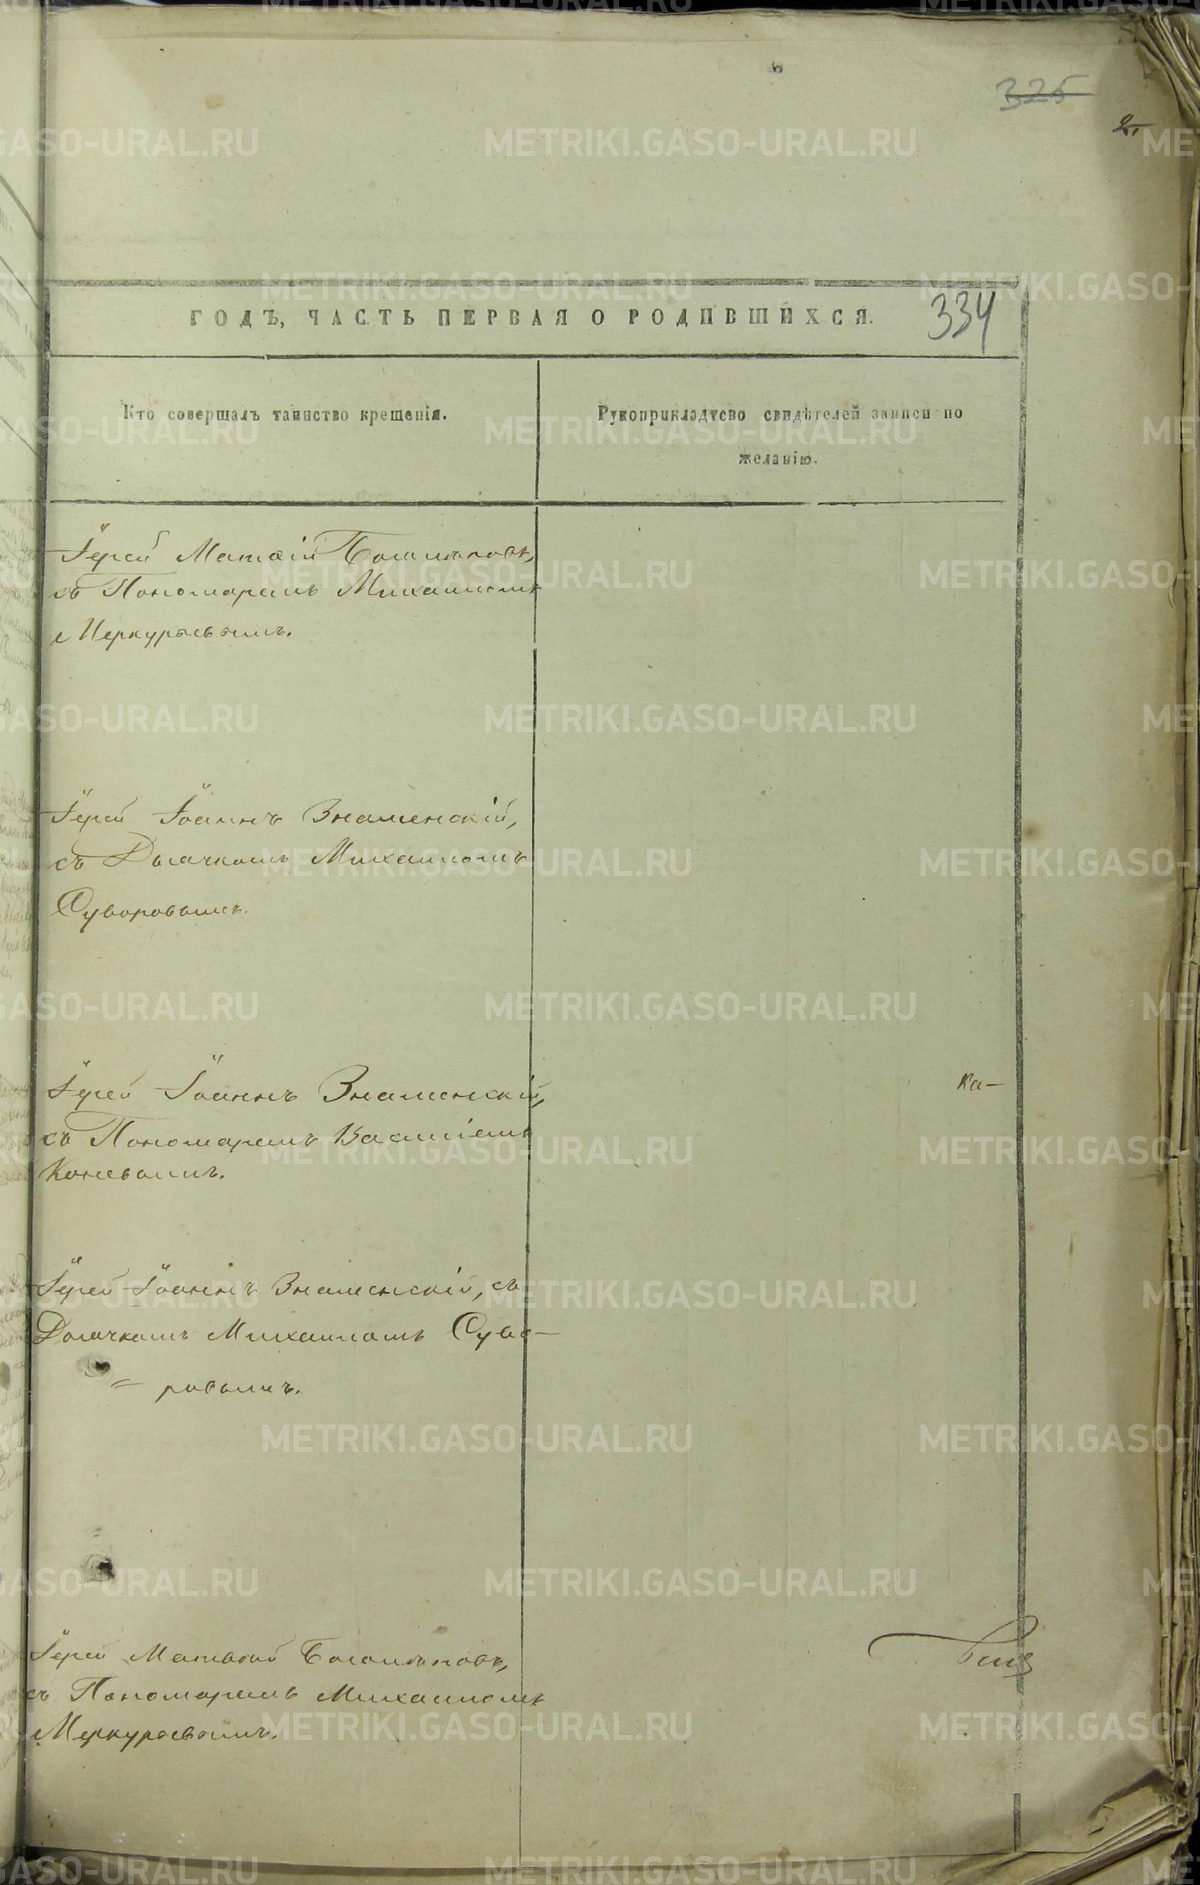 325
2.
ГОДЪ, ЧАСТЬ ПЕРВАЯ О РОДИВШИХСЯ.
334
Кто совершалъ таинство крещенія.
Рукоприкладтсво свидѣтелей записи по
желанію.
Іерей Матѳій
съ Пономаремъ Михаиломъ
Меркурьевымъ.
Іерей Іоаннъ Знаменскій,
съ Дьячкомъ Михаиломъ
Суворовымъ.
Іерей Іоаннъ Знаменскій,
съ Пономаремъ Василіемъ
Коневымъ.
Ка-
Іерей Іоаннъ Знаменскій, съ
Дьячкомъ Михаиломъ Суво-
= ровымъ.
Іерей Матвѣй
съ Пономаремъ Михаиломъ
Меркурьевымъ.
METRIKI.GASO-URAL.RU